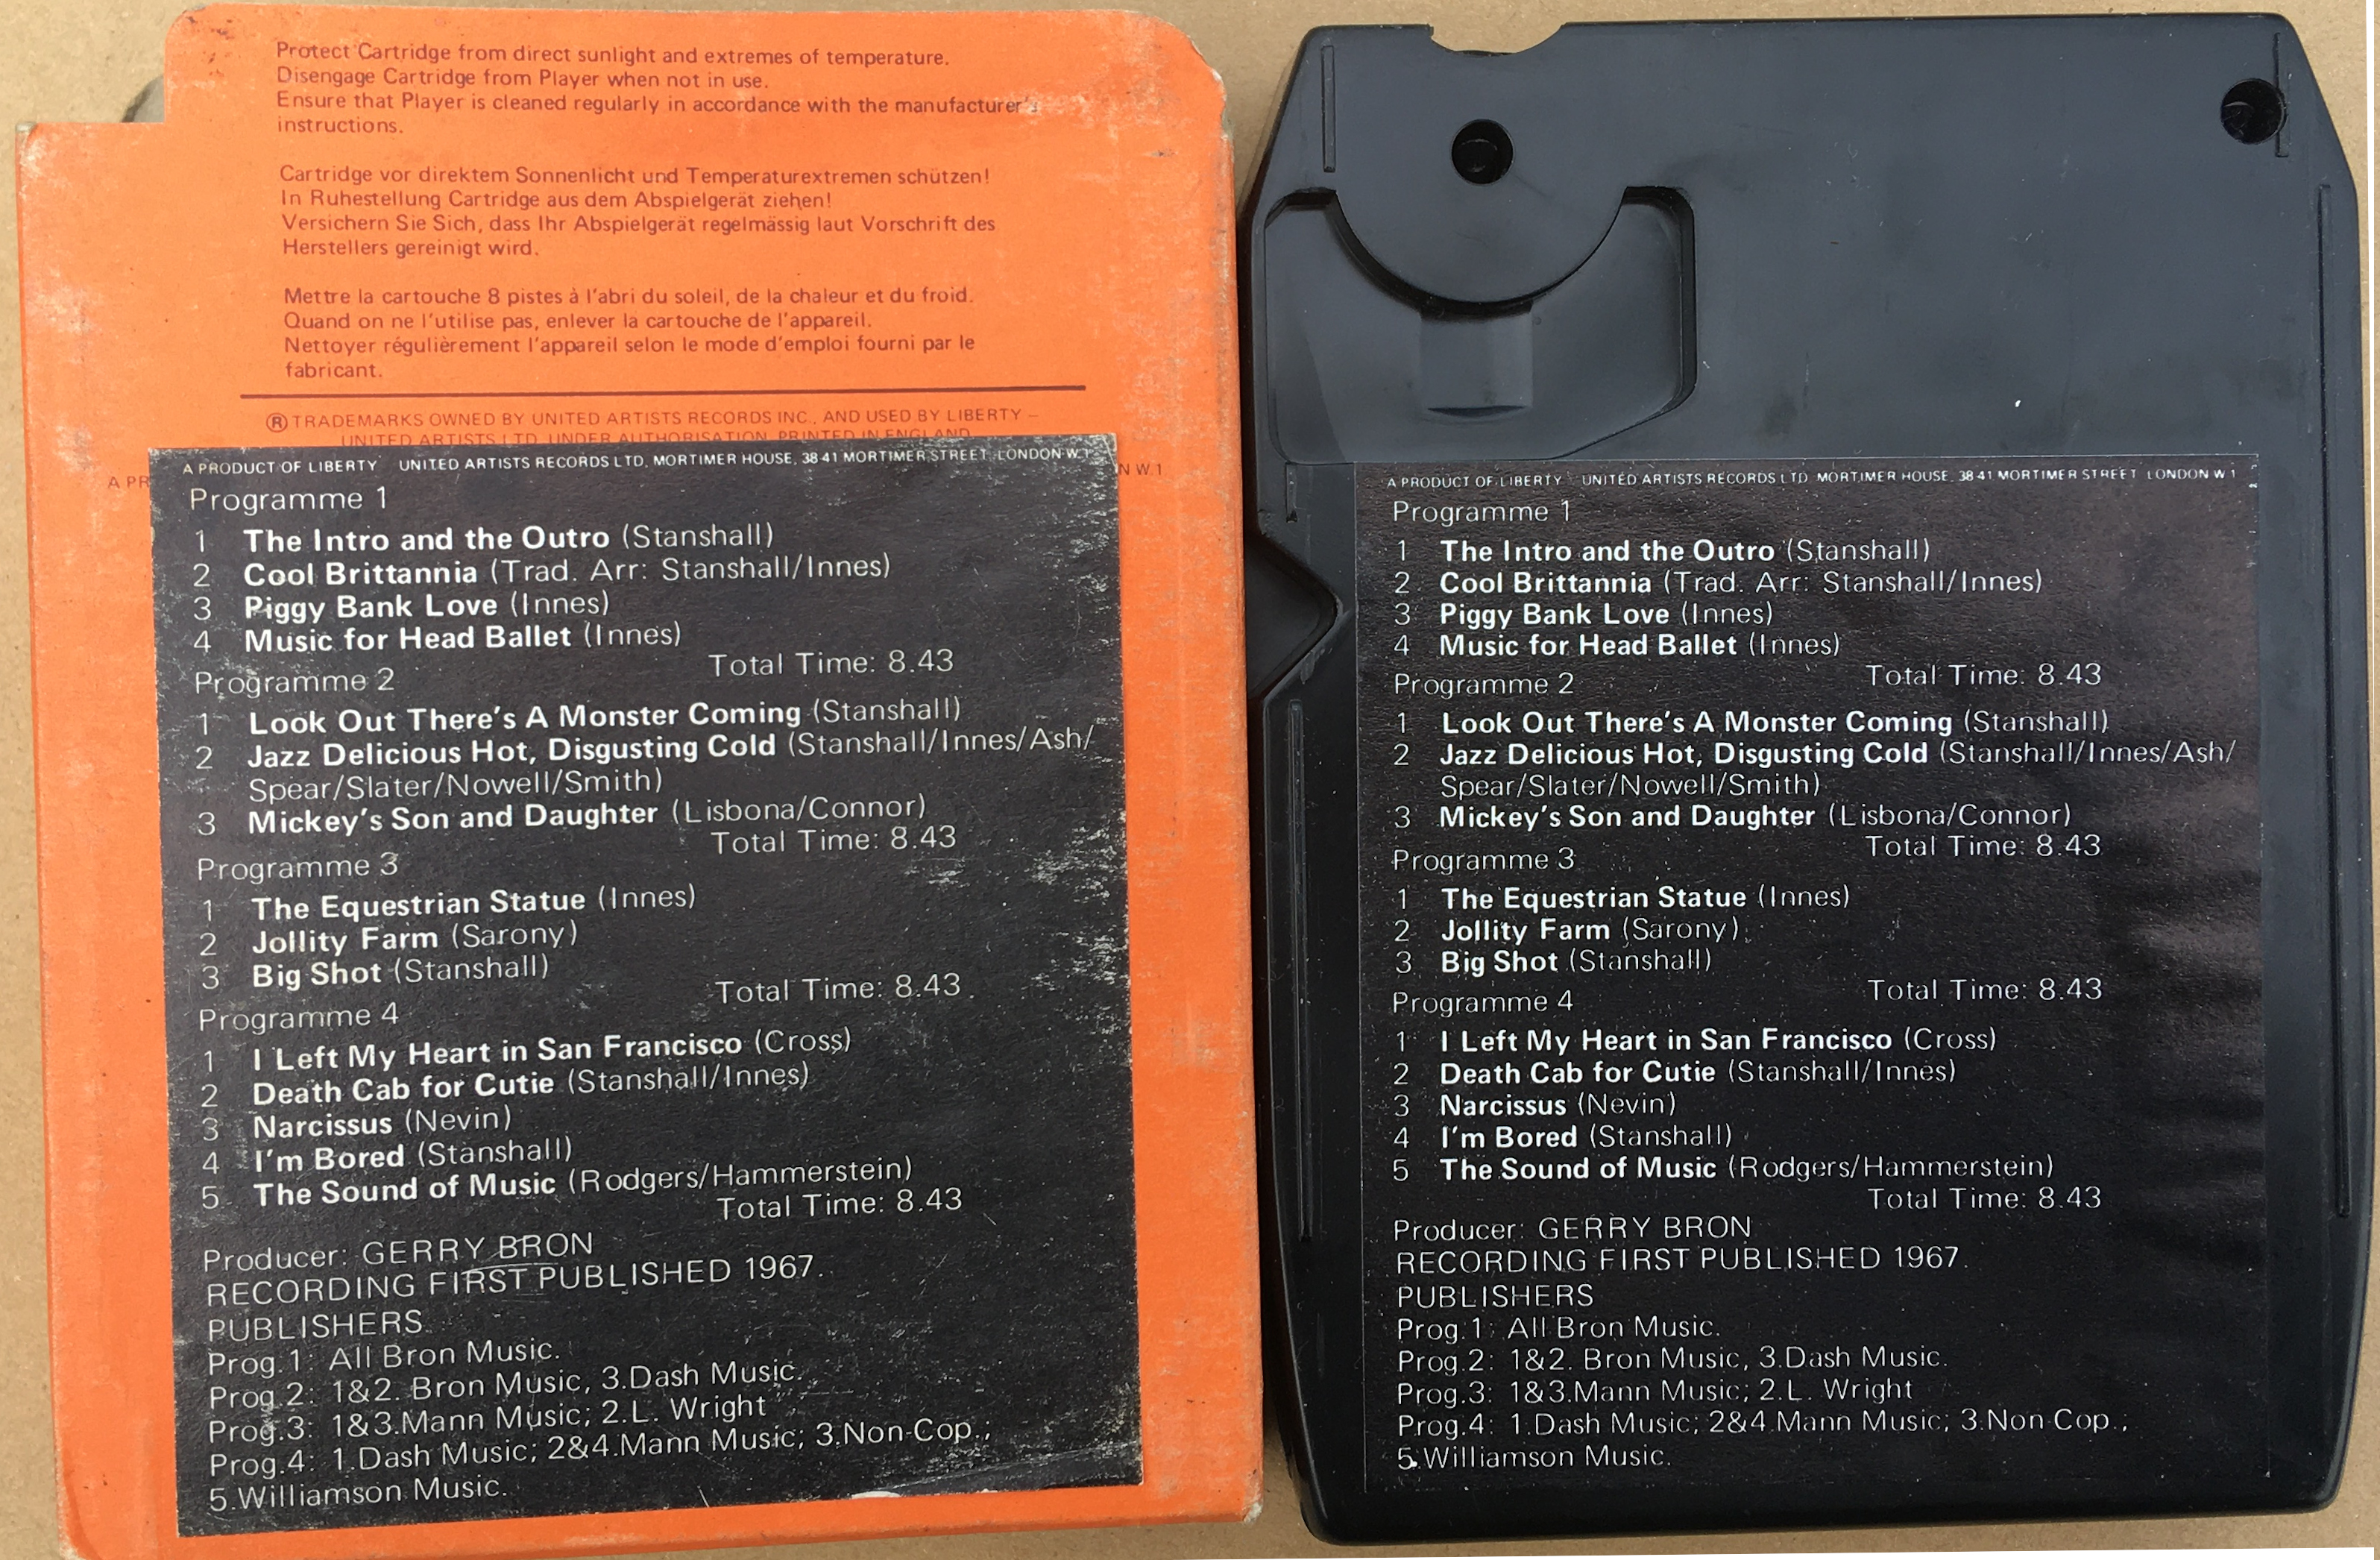 Protect Cartridge from direct sunlight and extremes of temperature.
Disengage Cartridge from Player when not in use.
Ensure that Player is cleaned regularly in accordance with the manufacturer's
instructions.
Cartridge vor direktem Sonnenlicht und Temperaturextremen schützen!
In Ruhestellung Cartridge aus dem Abspielgerät ziehen!
Versichern Sie Sich, dass Ihr Abspielgerät regelmässig laut Vorschrift des
Herstellers gereinigt wird.
Mettre la cartouche 8 pistes à l'abri du soleil, de la chaleur et du froid.
Quand on ne l'utilise pas, enlever la cartouche de l'appareil.
Nettoyer régulièrement l'appareil selon le mode d'emploi fourni par le
fabricant.
® TRADEMARKS OWNED BY UNITED ARTISTS RECORDS INC., AND USED BY LIBERTY –
UNITED ARTISTS LTD. UNDER AUTHORISATION. PRINTED IN ENGLAND
A PR N W.1
A PRODUCT OF LIBERTY UNITED ARTISTS RECORDS LTD. MORTIMER HOUSE, 38 41 MORTIMER STREET, LONDON W.1
Programme 1
1 The Intro and the Outro (Stanshall)
2 Cool Brittannia (Trad. Arr: Stanshall/Innes)
3 Piggy Bank Love (Innes)
4 Music for Head Ballet (Innes)
Total Time: 8.43
Programme 2
1 Look Out There's A Monster Coming (Stanshall)
2 Jazz Delicious Hot, Disgusting Cold (Stanshall/Innes/Ash/
Spear/Slater/Nowell/Smith)
3 Mickey's Son and Daughter (Lisbona/Connor)
Total Time: 8.43
Programme 3
1 The Equestrian Statue (Innes)
2 Jollity Farm (Sarony)
3 Big Shot (Stanshall)
Total Time: 8.43
Programme 4
1 I Left My Heart in San Francisco (Cross)
2 Death Cab for Cutie (Stanshall/Innes)
3 Narcissus (Nevin)
4 I'm Bored (Stanshall)
5 The Sound of Music (Rodgers/Hammerstein)
Total Time: 8.43
Producer: GERRY BRON
RECORDING FIRST PUBLISHED 1967.
PUBLISHERS
Prog.1: All Bron Music.
Prog.2: 1&2. Bron Music, 3.Dash Music.
Prog.3: 1&3.Mann Music; 2.L. Wright
Prog.4: 1.Dash Music; 2&4.Mann Music; 3.Non-Cop.;
5.Williamson Music.
A PRODUCT OF LIBERTY UNITED ARTISTS RECORDS LTD. MORTIMER HOUSE, 38 41 MORTIMER STREET LONDON W 1
Programme 1
1 The Intro and the Outro (Stanshall)
2 Cool Brittannia (Trad. Arr: Stanshall/Innes)
3 Piggy Bank Love (Innes)
4 Music for Head Ballet (Innes)
Total Time: 8.43
Programme 2
1 Look Out There's A Monster Coming (Stanshall)
2 Jazz Delicious Hot, Disgusting Cold (Stanshall/Innes/Ash/
Spear/Slater/Nowell/Smith)
3 Mickey's Son and Daughter (Lisbona/Connor)
Total Time: 8.43
Programme 3
1 The Equestrian Statue (Innes)
2 Jollity Farm (Sarony)
3 Big Shot (Stanshall)
Total Time: 8.43
Programme 4
1 I Left My Heart in San Francisco (Cross)
2 Death Cab for Cutie (Stanshall/Innes)
3 Narcissus (Nevin)
4 I'm Bored (Stanshall)
5 The Sound of Music (Rodgers/Hammerstein)
Total Time: 8.43
Producer: GERRY BRON
RECORDING FIRST PUBLISHED 1967.
PUBLISHERS
Prog.1: All Bron Music.
Prog.2: 1&2. Bron Music, 3.Dash Music.
Prog.3: 1&3.Mann Music; 2.L. Wright
Prog.4: 1.Dash Music; 2&4.Mann Music; 3.Non-Cop.;
5.Williamson Music.